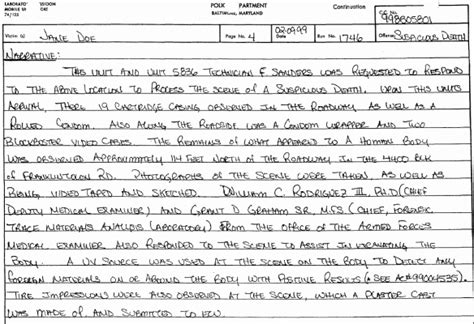 LABORATO DIVISION POLK PARTMENT Continuation CC No.
MOBILE BALTIMORE, MARYLAND 998B05801
Victim(s) JANE DOE 020999 Page No. 4 Run No. 1746 Offense SUSPICIOUS DEATH
NARRATIVE:
THIS UNIT AND UNIT 5836 TECHNICIAN F. SANDERS WAS REQUESTED TO RESPOND
TO THE ABOVE LOCATION TO PROCESS THE SCENE OF A SUSPICIOUS DEATH. UPON THIS UNITS
ARRIVAL, THERE 19 CARTRIDGE CASING OBSERVED IN THE ROADWAY, AS WELL AS A
ROLLED CONDOM. ALSO ALONG THE ROADSIDE WAS A CONDOM WRAPPER AND TWO
BLOCKBUSTER VIDEO CASES. THE REMAINS OF WHAT APPEARED TO A HUMAN BODY
WAS OBSERVED APPROXIMATELY 114 FEET NORTH OF THE ROADWAY IN THE 4400 BLK
OF FRANKLINTOWN RD. PHOTOGRAPHS OF THE SCENE WERE TAKEN, AS WELL AS
BEING VIDEO TAPED AND SKETCHED. WILLIAM C. RODRIGUEZ III, PH.D (CHIEF
DEPUTY MEDICAL EXAMINER) AND GRANT D GRAHAM SR. MFS. (CHIEF, FORENSIC
TRACE MATERIALS ANALYSIS LABORATORY) FROM THE OFFICE OF THE ARMED FORCES
MEDICAL EXAMINER ALSO RESPONDED TO THE SCENE TO ASSIST IN EXCAVATING THE
BODY. A UV SOURCE WAS USED AT THE SCENE ON THE BODY TO DETECT ANY
FOREIGN MATERIALS ON OR AROUND THE BODY WITH POSITIVE RESULTS (SEE AC# 99004535).
TIRE IMPRESSIONS WERE ALSO OBSERVED AT THE SCENE, WHICH A PLASTER CAST
WAS MADE OF AND SUBMITTED TO ECU.